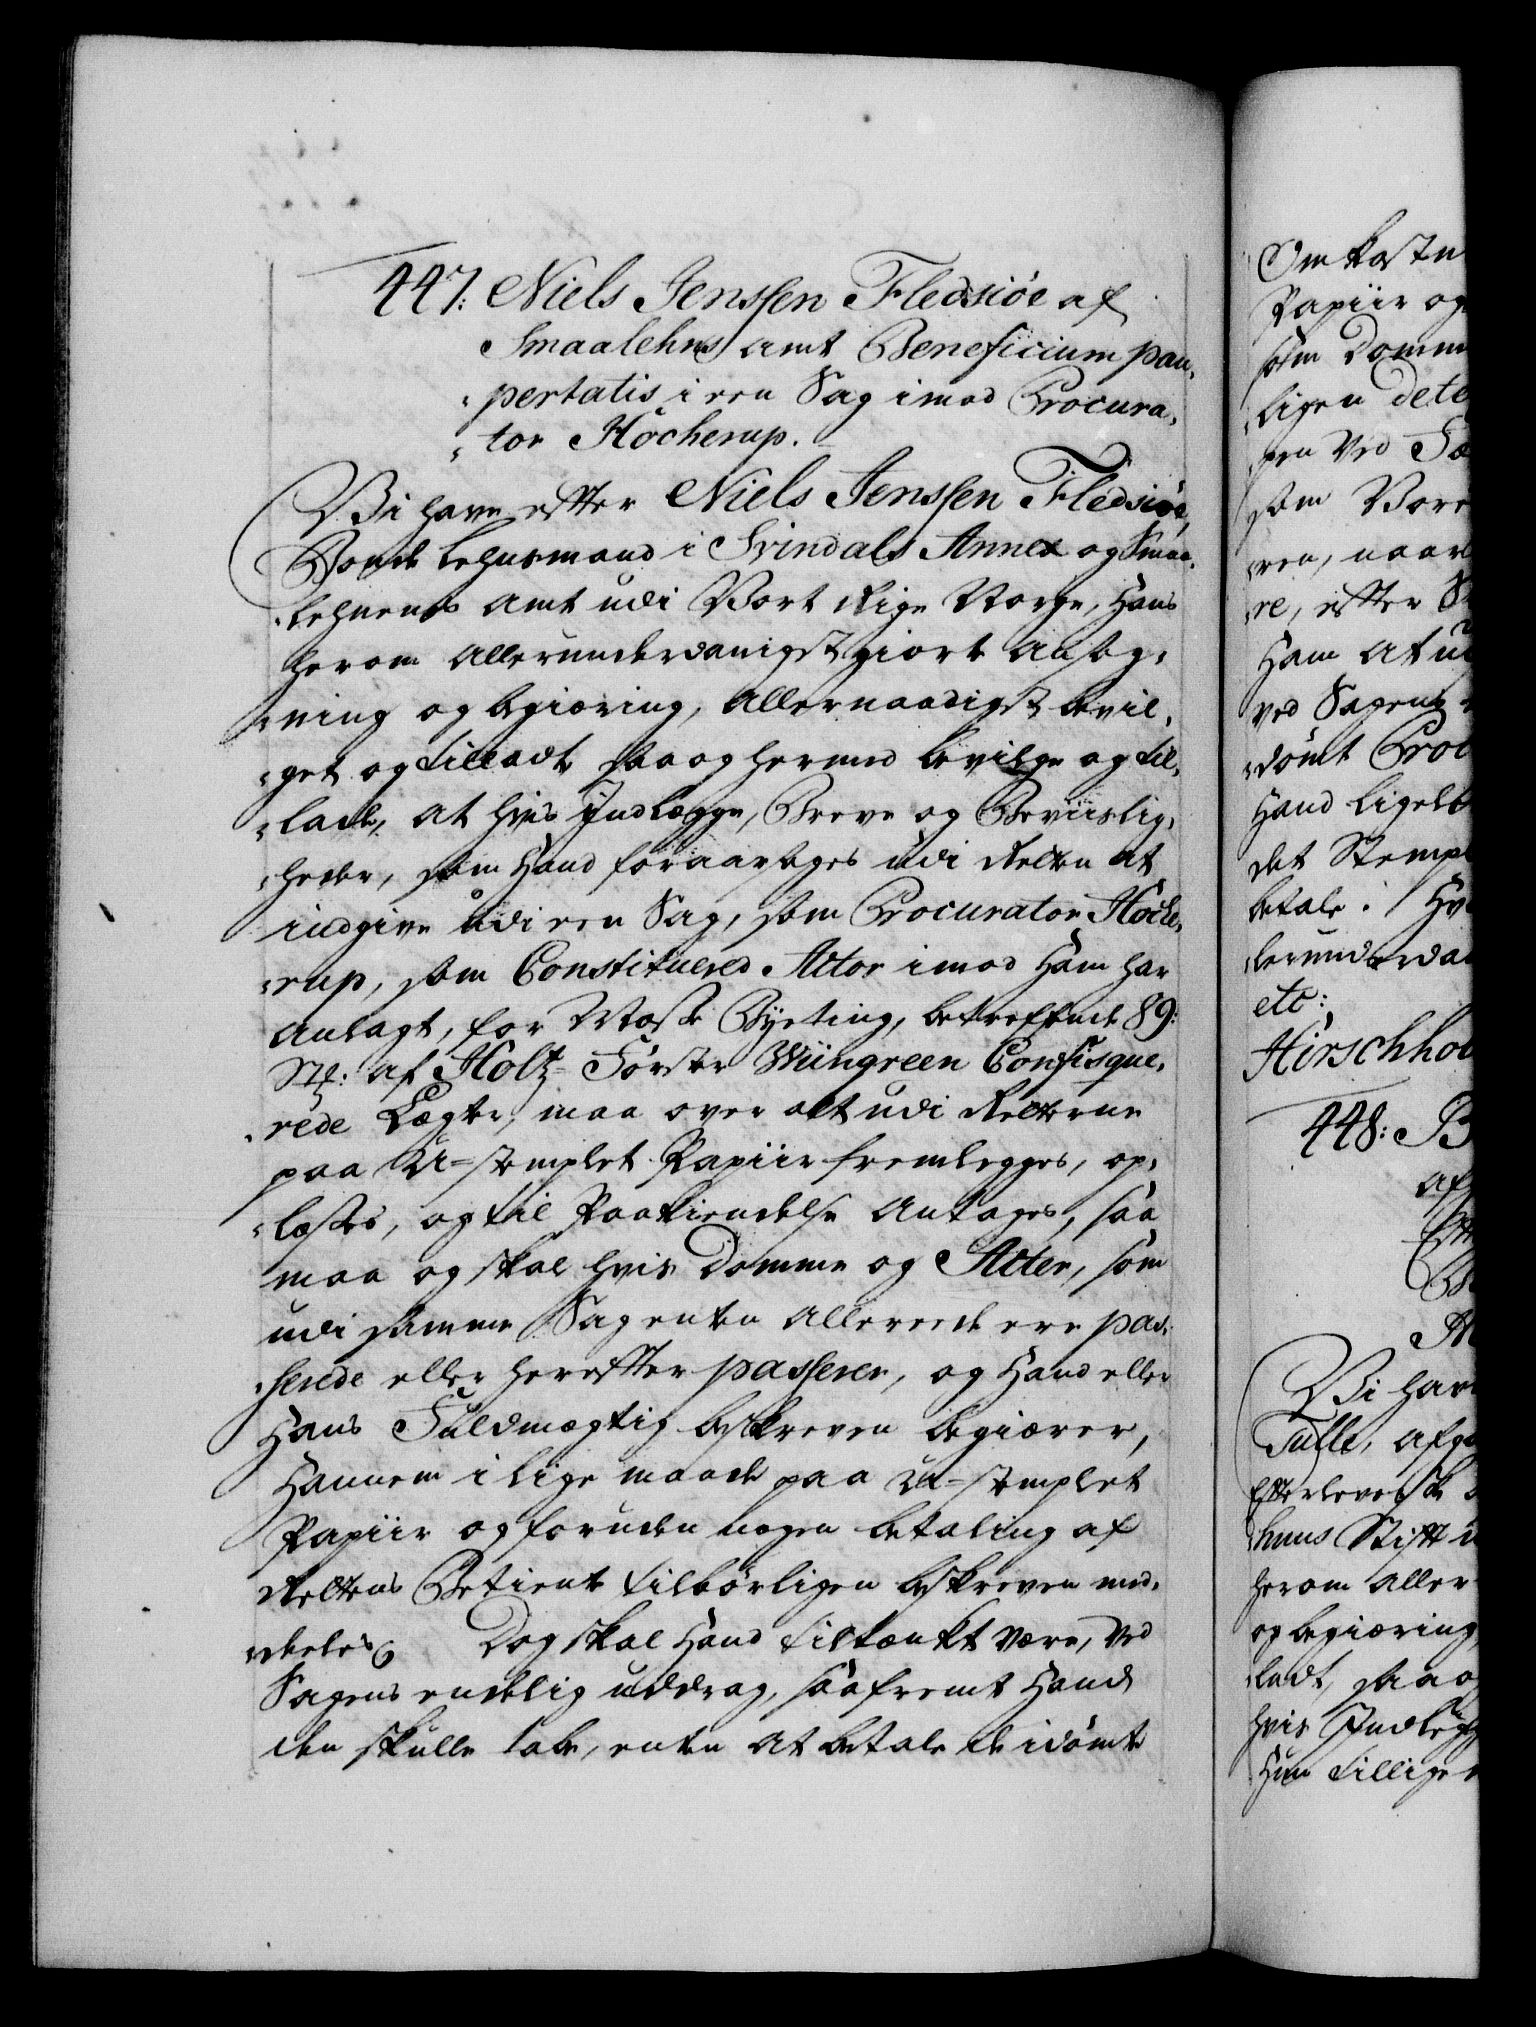 447. Niels Jenssen Fledsiøe af
Smaalehns amt Beneficium pau-
pertatis i een Sag imod Procura-
tor Höcherup.
Vi have efter Niels Jenssen Fledsiøe,
Bonde Lehnsmand i Svindals Annex og Smaa-
lehnens amt udi Vort Rige Norge, Hans
herom allerunderdanigst giorte ansøg-
ning og begiæring, allernaadigst bevil-
get og tilladt saa og hermed bevilge og til-
lade, at hvis Indlægge, Breve og Beviislig-
heder, som Hand foraarsages udi Retten at
indgive udi een Sag, som Procurator Höche-
rup, som Constituered Actor imod Ham har
anlagt, for Mosse Byeting, betreffende 89:
Stk: af Holtz-Førster Wiingreen Confisque-
rede Lægter, maa over alt udi Retterne
paa U-stemplet Papiir fremlegges, op-
læses, og til Paakiendelse antages, saa
maa og skal hvis Domme og Acter, som
udi samme Sag enten allereede ere pas-
serede eller herefter passerer, og Hand eller
Hans Fuldmægtig beskreven begiærer,
Hannem i lige maade paa U-stemplet
Papiir og foruden nogen betaling af
Rettens Betiente tilbørligen beskreven med-
deeles. Dog skal Hand tiltænkt være, ved
Sagens endelig uddrag, saafremt Hand
den skulle tabe, enten at betale de idømte
Omkostn
Papiir og
som Domm
ligen dete
pen ved
som Vore
ren, naar
re, efter
Ham at u
ved Sagens
dömt Proc
Hand ligele
det Stempl
betale. Hv
lerunderda
etc:
Hirschhol
448: B
af
Vi hav
Tulle, afg
Efterleverske
huus Stift u
herom aller
og begiæring
ladt, saa og
hvis Indlegg
Hun tillige